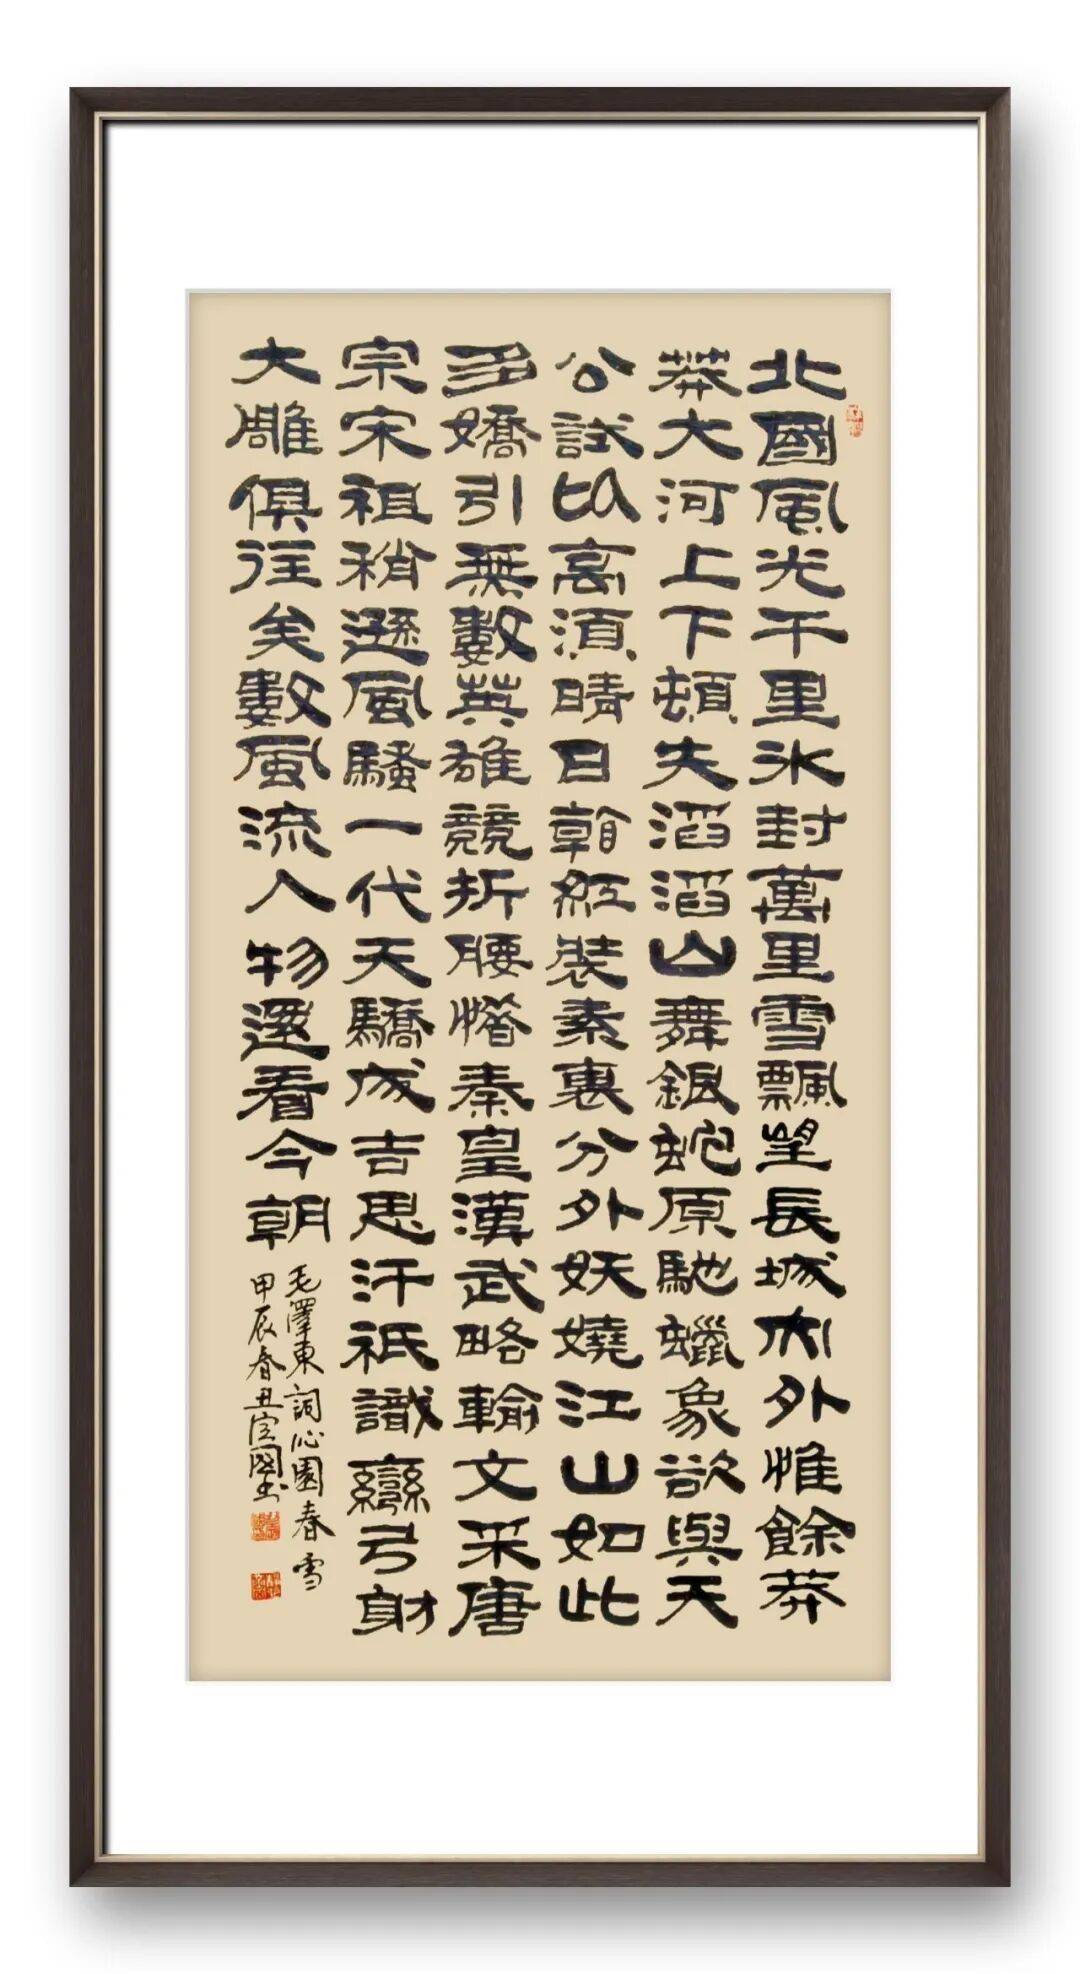 北國風光千里冰封萬里雪飄望長城內外惟餘莽
莽大河上下頓失滔滔山舞銀蛇原馳蠟象欲與天
公試比高須晴日看紅裝素裹分外妖嬈江山如此
多嬌引無數英雄競折腰惜秦皇漢武略輸文采唐
宗宋祖稍遜風騷一代天驕成吉思汗祇識彎弓射
大雕俱往矣數風流人物還看今朝
毛澤東詞沁園春雪
甲辰春